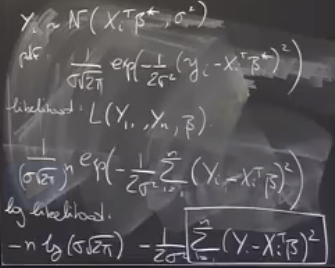 Yᵢ ~ N(Xᵢᵀβ*, σ²)
pdf:
1/(σ√2π) exp(-1/2σ² (yᵢ-Xᵢᵀβ*)²)
likelihood: L(Y₁, , Yₙ, β)
1/(σ√2π)ⁿ exp(-1/2σ² Σⁿᵢ₌₁ (Yᵢ-Xᵢᵀβ)²)
log likelihood:
-n log(σ√2π) -1/2σ² Σⁿᵢ₌₁ (Yᵢ-Xᵢᵀβ)²